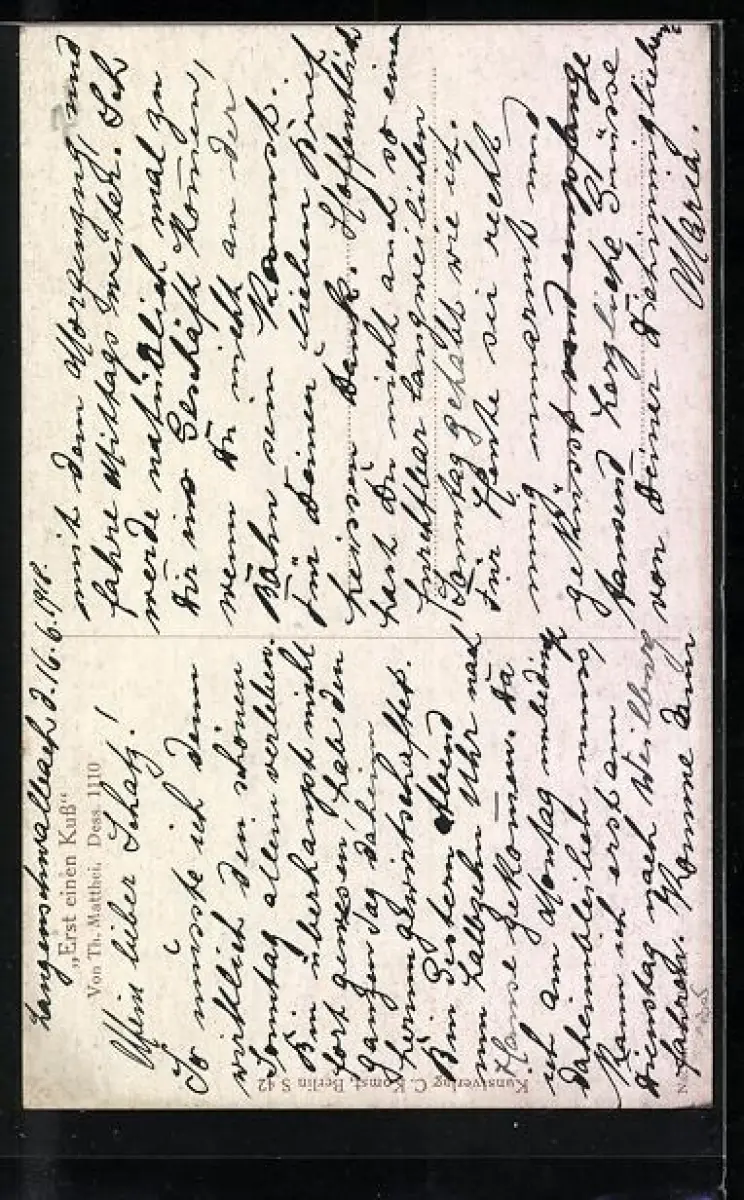 Langenschwalbach d. 16.6.1918.
„Erst einen Kuß“
Von Th. Matthei. Dess. 1110
Mein lieber Schatz!
So müsste ich denn
wirklich den schönen
Sonntag allein verleben.
Bin überhaupt nicht
fort gewesen, hab den
ganzen Tag daheim
herumgewirtschaftet.
Bin gestern Abend
um halbzehn Uhr nach
Hause gekommen. Da
ich am Montag unbedingt
daheimbleiben muss,
kann ich erst am
Dienstag nach Weilburg
fahren. Komme dann
mit dem Morgenzug und
fahre Mittags weiter. Ich
werde natürlich mal zu
Dir ins Geschäft kommen,
wenn Du nicht an der
Bahn sein kannst.
Für Deinen lieben Brief
heissen Dank. Hoffentlich
hast Du nicht auch so einen
furchtbar langweilichen
Sonntag gehabt wie ich.
Für Heute sei recht
innig umarmt und
geküsst und empfange
tausend herzliche Grüsse
von Deiner Dichinnigliebenden
Maria.
Kunstverlag C. Komst, Berlin S 42